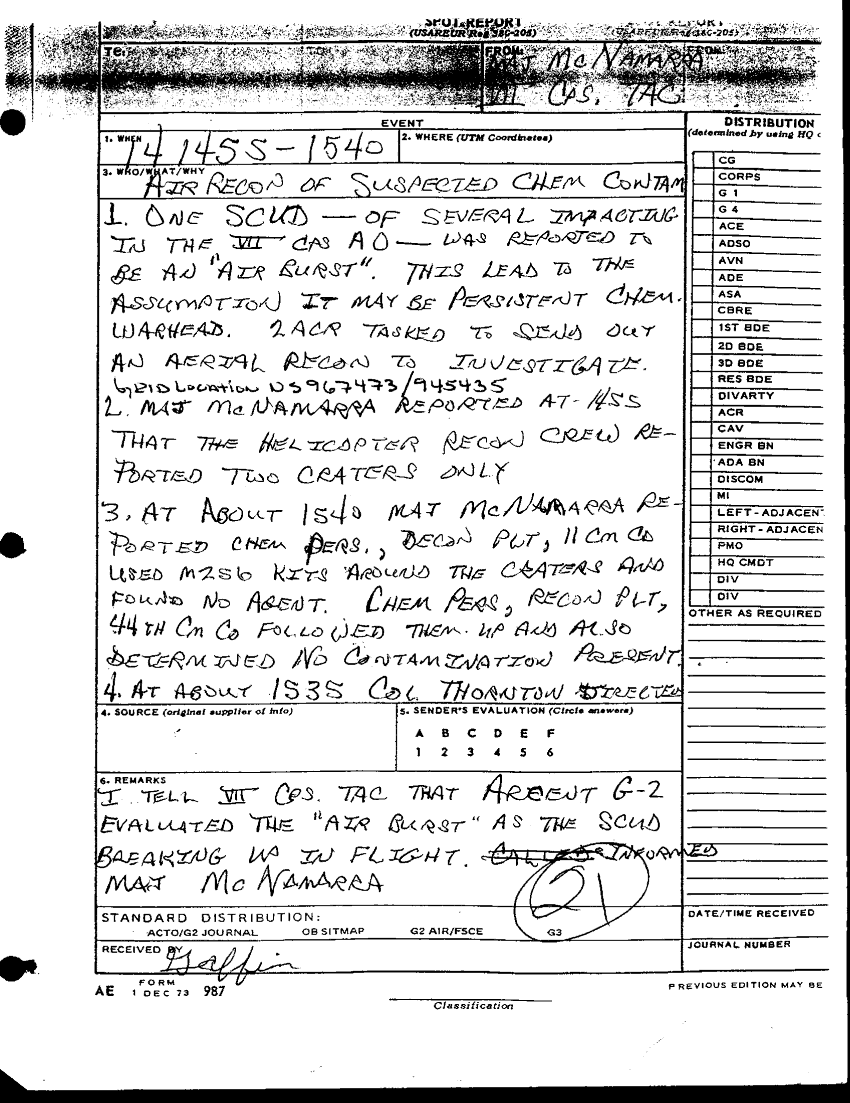 SPOT REPORT
(USAREUR Reg 380-205)
TO:
FROM:
MAJ McNAMARRA
VII CPS. TAC
EVENT
1. WHEN
14 1455-1540
2. WHERE (UTM Coordinates)
3. WHO/WHAT/WHY
AIR RECON OF SUSPECTED CHEM CONTAM
1. ONE SCUD — OF SEVERAL IMPACTING
IN THE VII CPS AO — WAS REPORTED TO
BE AN "AIR BURST". THIS LEAD TO THE
ASSUMPTION IT MAY BE PERSISTENT CHEM.
WARHEAD. 2ACR TASKED TO SEND OUT
AN AERIAL RECON TO INVESTIGATE.
GRID LOCATION NS967473/945435
2. MAJ McNAMARRA REPORTED AT 1455
THAT THE HELICOPTER RECON CREW RE-
PORTED TWO CRATERS ONLY
3. AT ABOUT 1540 MAJ McNAMARRA RE-
PORTED CHEM PERS., DECON PLT, 11 Cm Co
USED M256 KITS AROUND THE CRATERS AND
FOUND NO AGENT. CHEM PERS, RECON PLT,
44TH Cm Co FOLLOWED THEM UP AND ALSO
DETERMINED NO CONTAMINATION PRESENT.
4. AT ABOUT 1535 COL THORNTON DIRECTED
4. SOURCE (original supplier of info)
5. SENDER'S EVALUATION (Circle answers)
A B C D E F
1 2 3 4 5 6
6. REMARKS
I TELL VII CPS. TAC THAT ARCENT G-2
EVALUATED THE "AIR BURST" AS THE SCUD
BREAKING UP IN FLIGHT. CALLED INFORMED
MAJ McNAMARRA
21
STANDARD DISTRIBUTION:
ACTO/G2 JOURNAL OB SITMAP G2 AIR/FSCE G3
RECEIVED BY
Gaffin
AE FORM 1 DEC 73 987
Classification
PREVIOUS EDITION MAY BE
DISTRIBUTION
(determined by using HQ
CG
CORPS
G 1
G 4
ACE
ADSO
AVN
ADE
ASA
CBRE
1ST BDE
2D BDE
3D BDE
RES BDE
DIVARTY
ACR
CAV
ENGR BN
ADA BN
DISCOM
MI
LEFT-ADJACENT
RIGHT-ADJACEN
PMO
HQ CMDT
DIV
DIV
OTHER AS REQUIRED
DATE/TIME RECEIVED
JOURNAL NUMBER